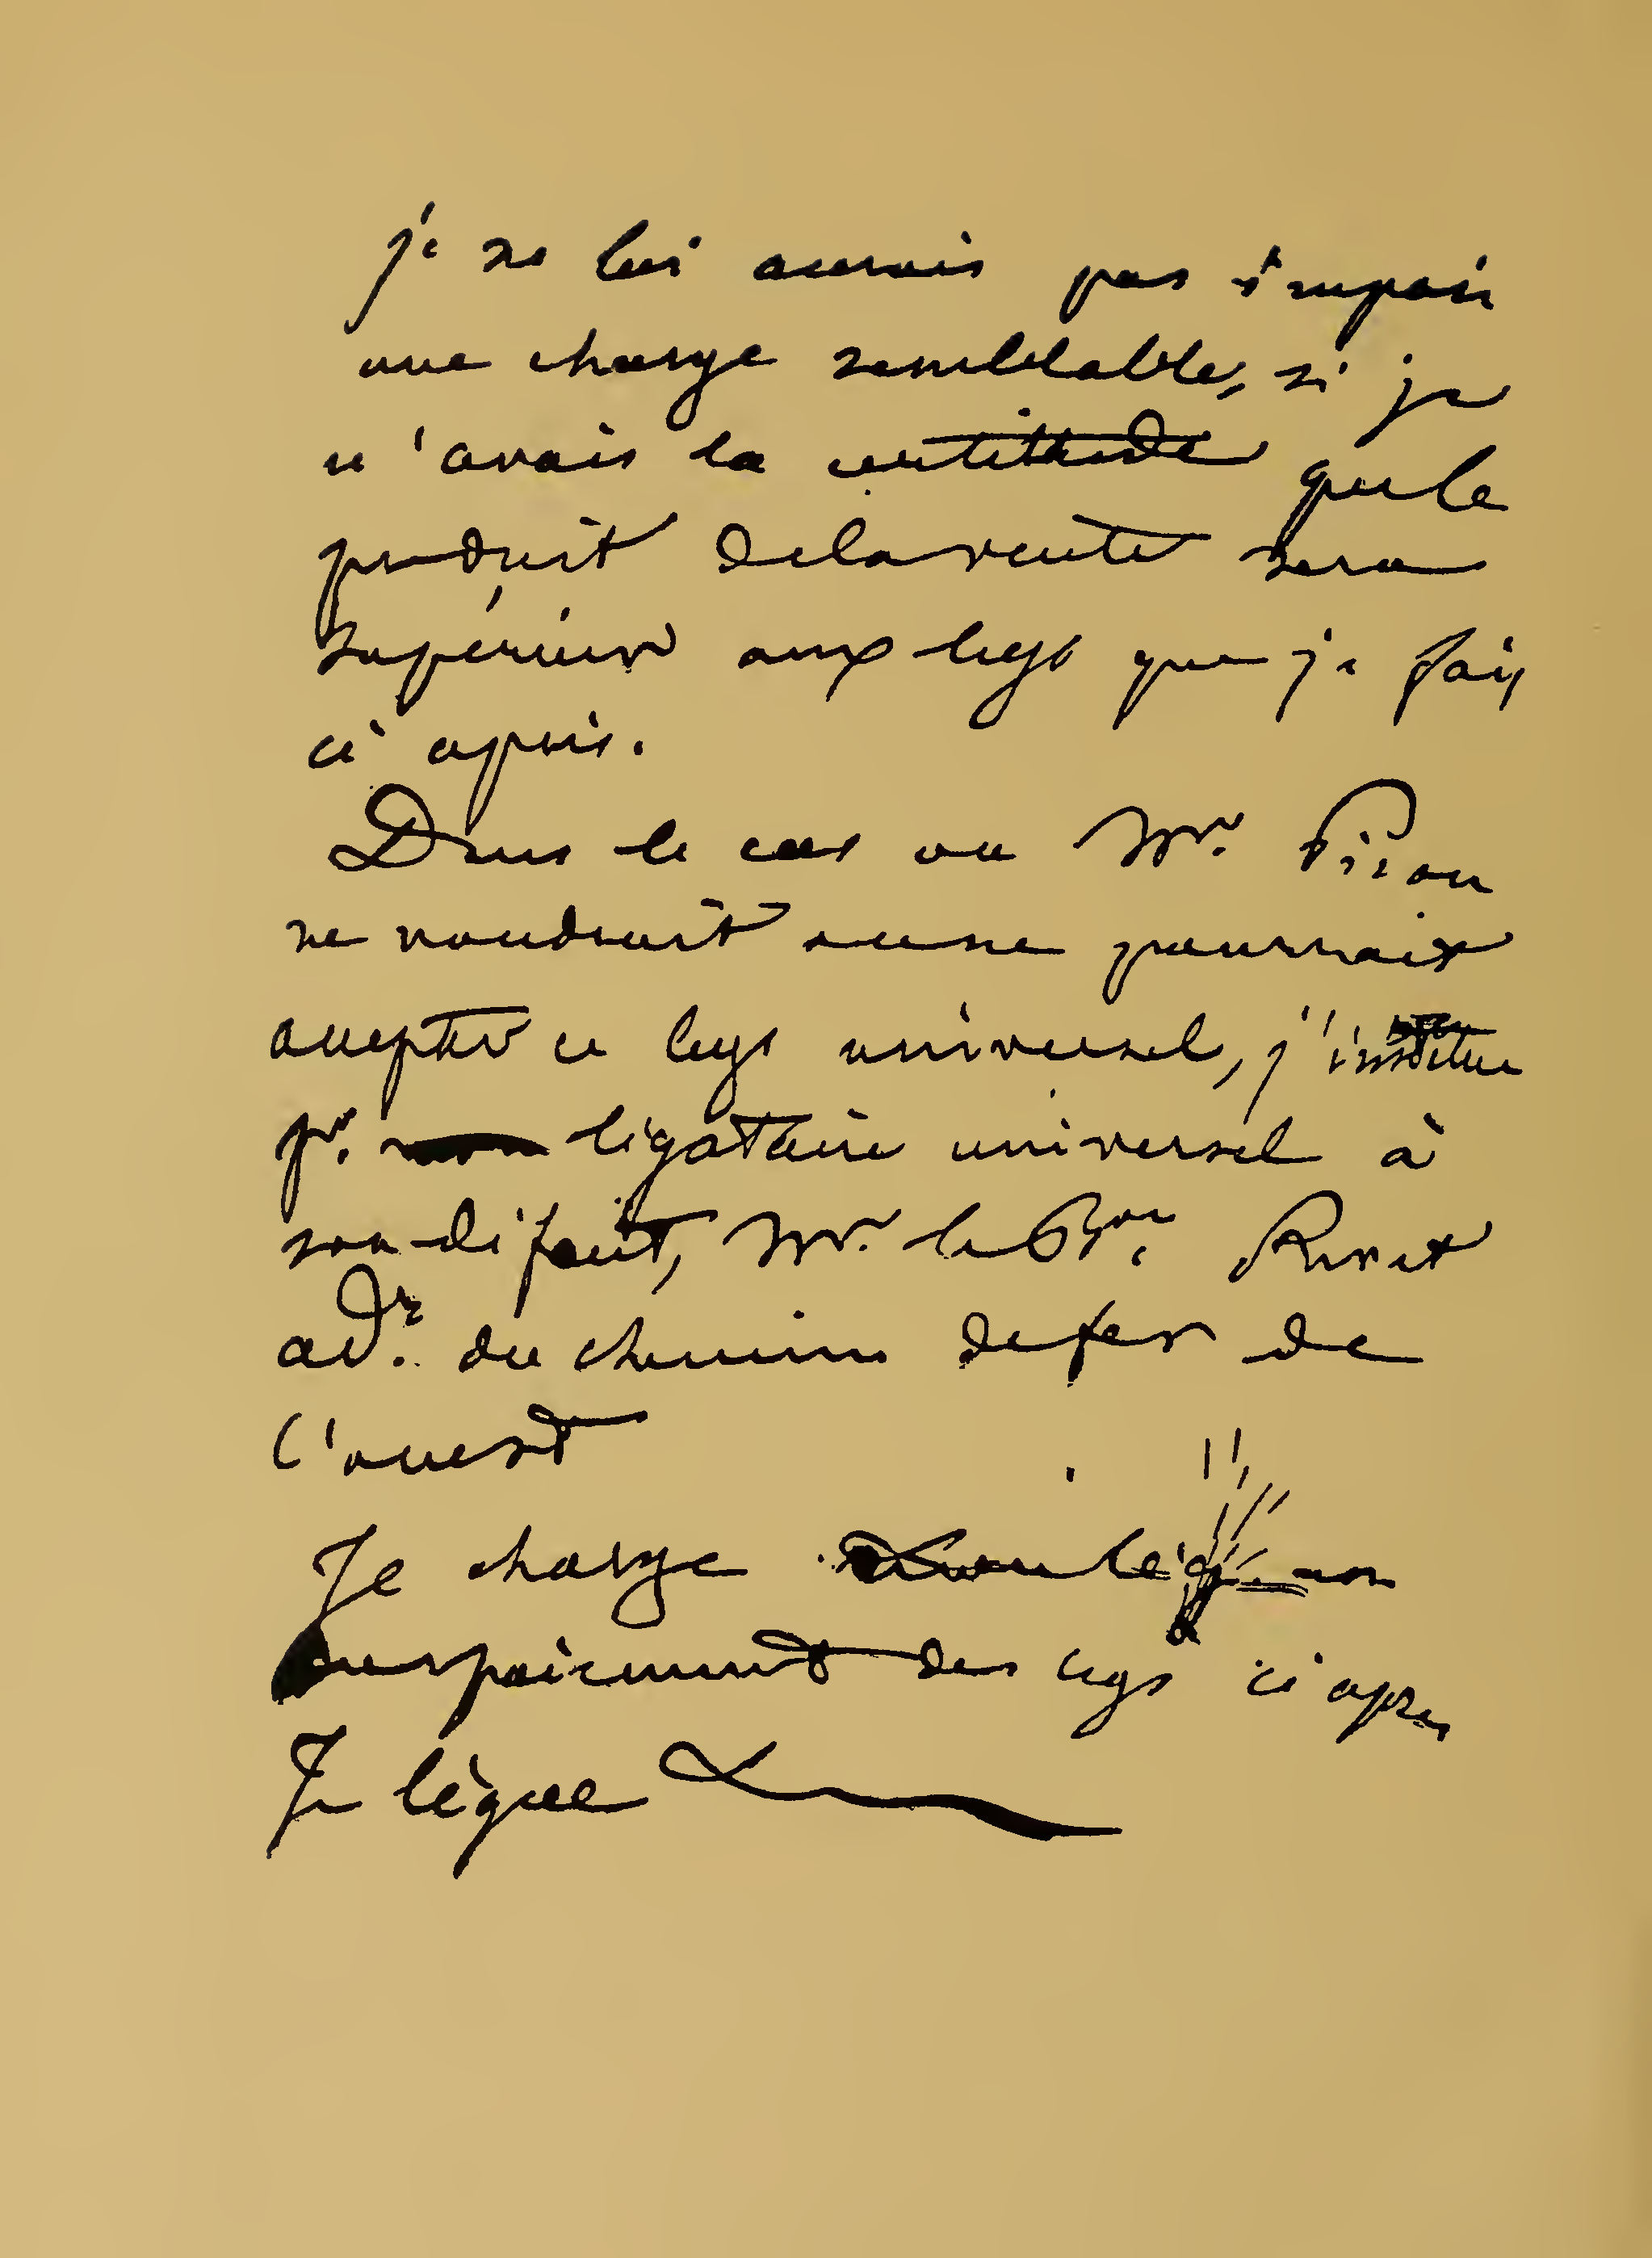 je ne lui aurais pas imposé
une charge semblable, si je
n'avais la certitude que le
produit de la vente sera
supérieur aux legs que je fais
ci après.
Dans le cas ou Mr. Piron
ne voudrait ou ne pourrait
accepter ce legs universel, j'institue
pr. mon légataire universel à
son défaut, Mr. le Bon. Rivet
adr. du chemin de fer de
l'ouest
Je charge mon
du paiement des legs ci après
Je lègue